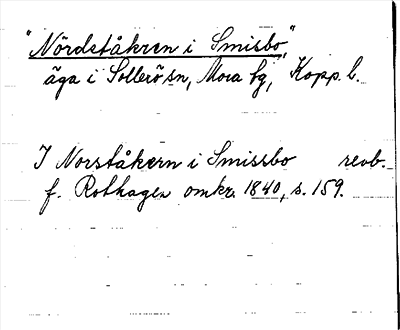 "Nördståkren i Smisbo"
äga i Sollerö sn, Mora tg, Kopp. l.
I Norståkern i Smissbo revb.
f. Rothagen omkr. 1840, s. 159.